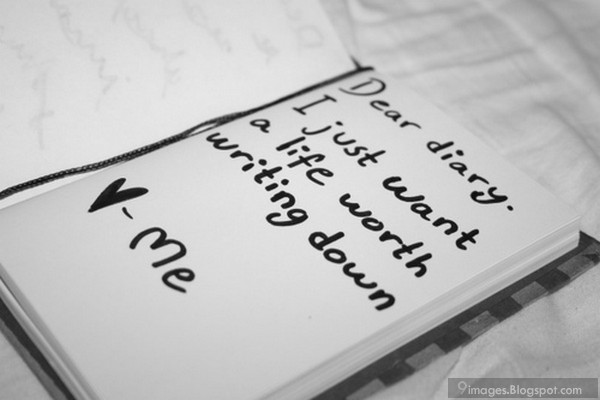 Dear diary.
I just want
a life worth
writing down
♥- Me
9images.Blogspot.com